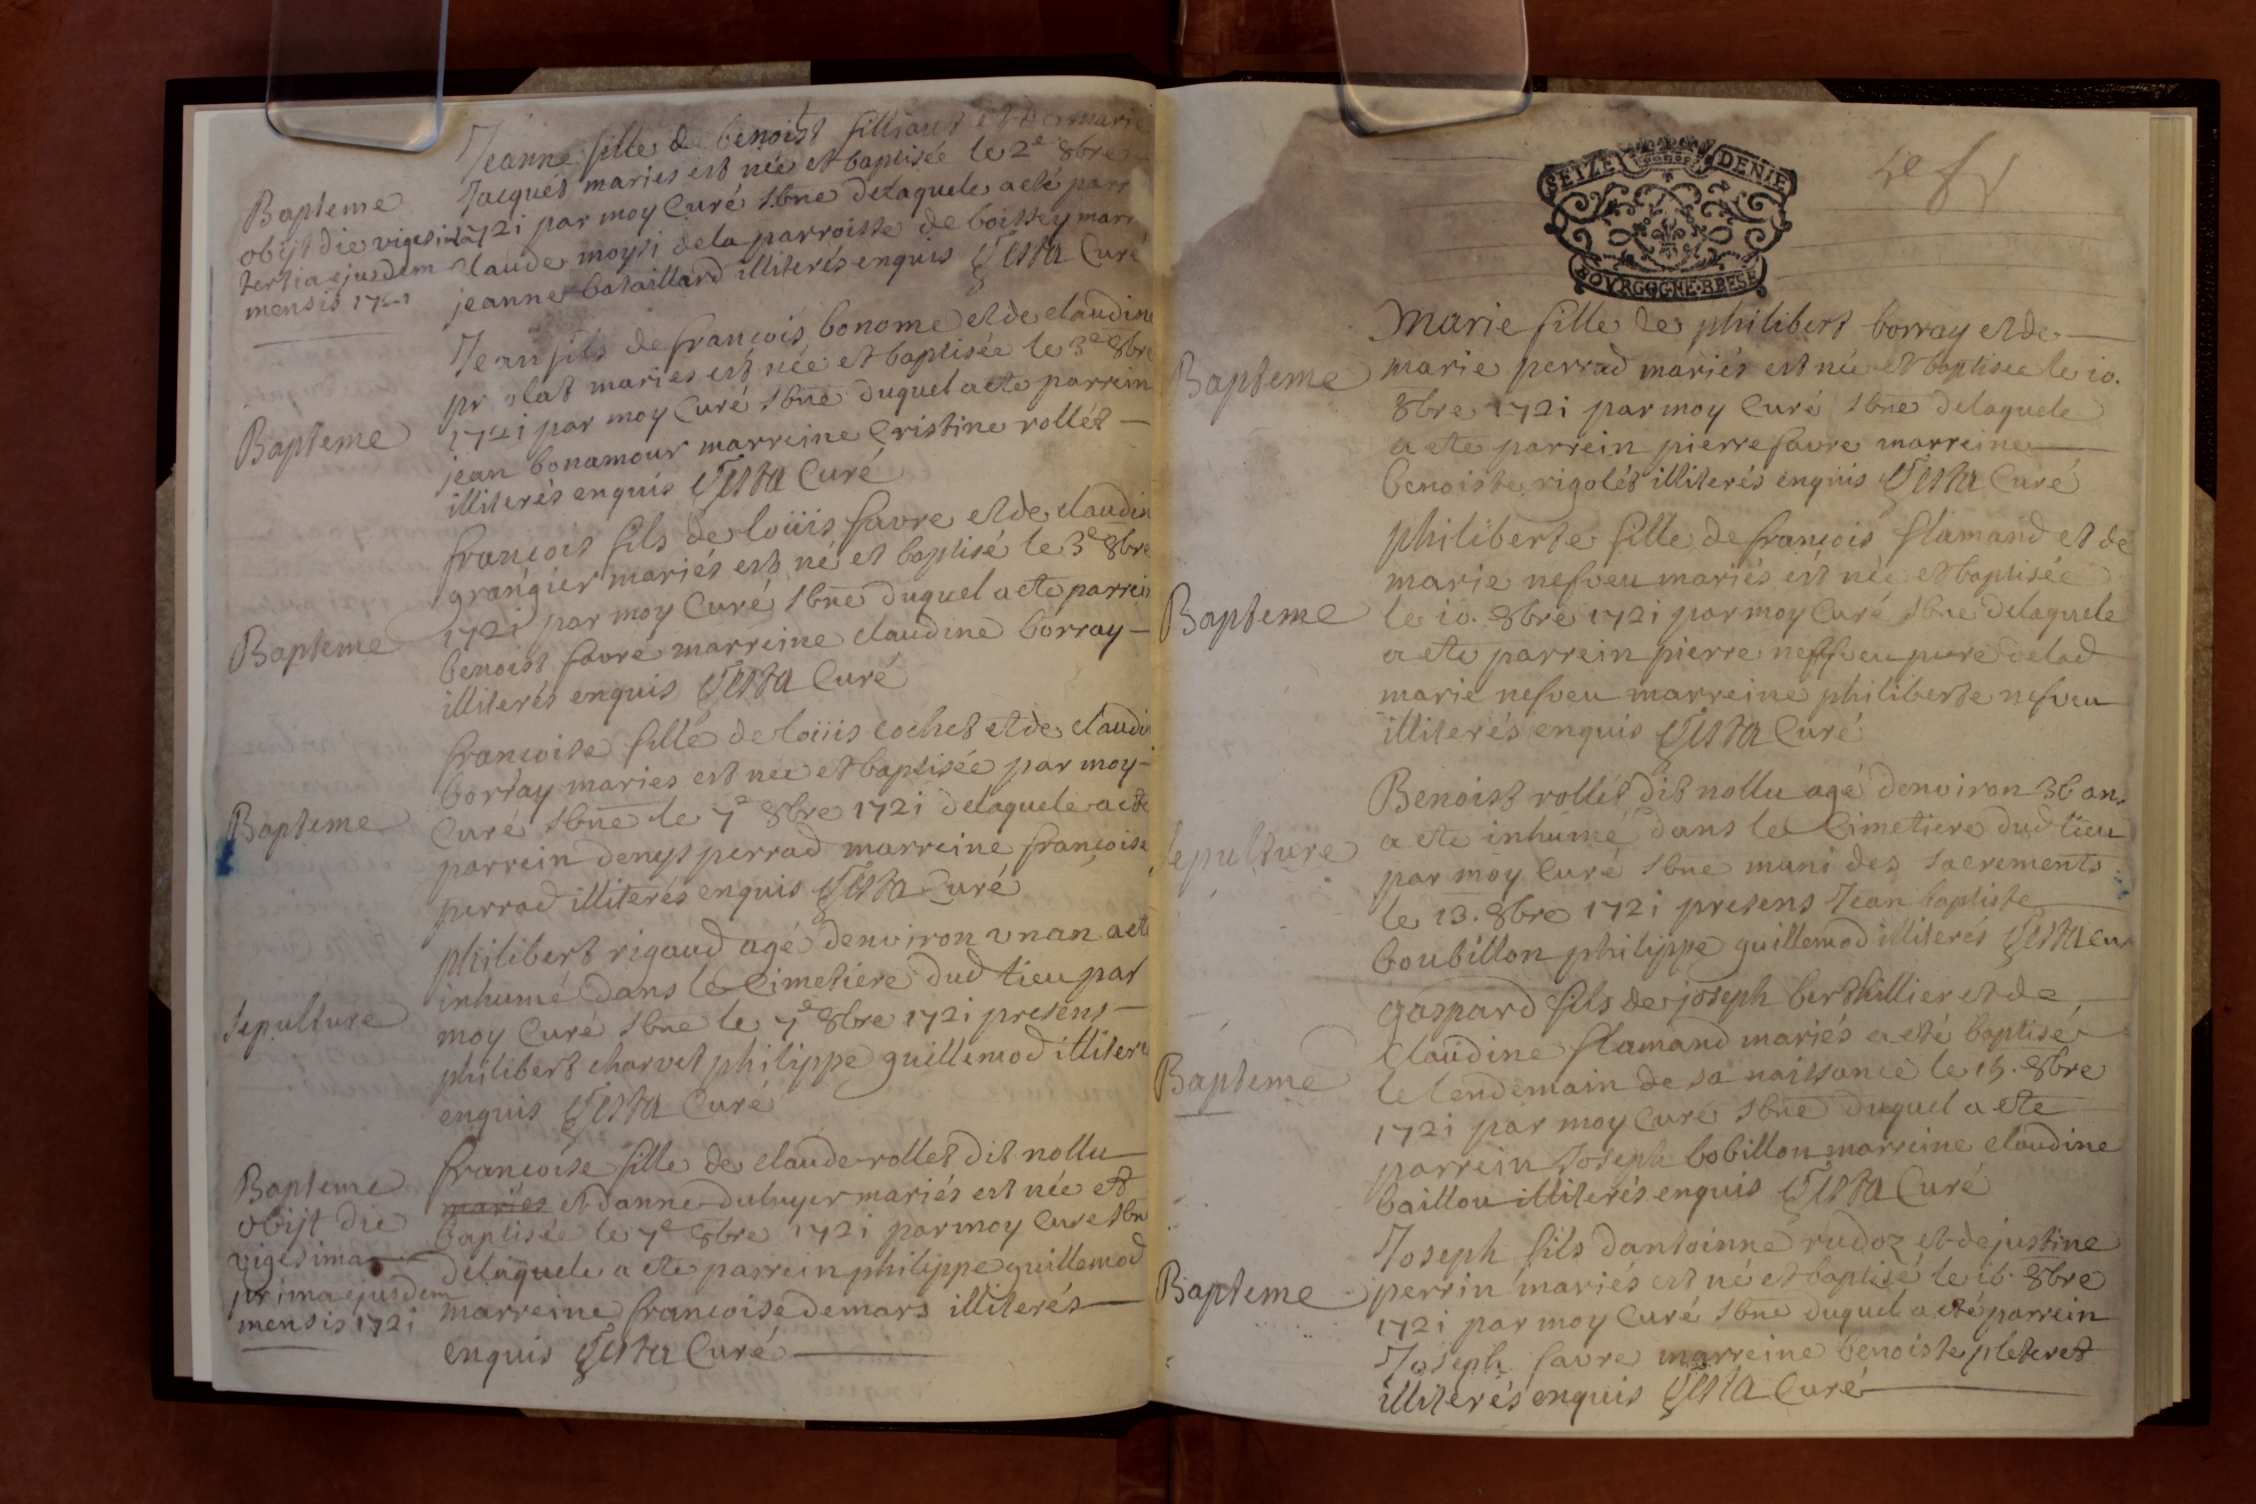 Jeanne fille de benoist filliout et de marie
Jacquet maries est née et baptisée le 2e 8bre
Bapteme
1721 par moy Curé sbne delaquele a eté parr
obijt die vigesima
Claude moysi dela parroisse de boissey marr
tertia ejusdem
jeanne bataillard illiterés enquis Testa Curé
mensis 1721
Jean fils de françois bonome et de claudine
maries est née et baptisée le 3e 8bre
Bapteme
1721 par moy Curé sbne duquel a ete parrein
jean bonamour marreine Cristine rollet
illiterés enquis Testa Curé
françois fils de loüis favre et de claudin
grangier mariés est né et baptisé le 3e 8bre
Bapteme
1721 par moy Curé sbne duquel a ete parrein
benoist favre marreine claudine borray
illiterés enquis Testa Curé
francoise fille de loüis cochet et de claudi
borray maries est née et baptisée par moy
Bapteme
Curé sbne le 7e 8bre 1721 delaquele a ete
parrein denys perrad marreine françoise
perrad illiterés enquis Testa Curé
philibert rigaud agé denviron un an a eté
inhumé dans le Cimetiere dud lieu par
sepulture
moy Curé sbne le 7e 8bre 1721 presens
philibert charvet philippe guillemod illiteré
enquis Testa Curé
françoise fille de claude rollet dit nollu
Bapteme
mariés et danne dubuyer mariés est née et
obijt die
baptisée le 7e 8bre 1721 par moy Cure sbn
vigesima
delaquele a ete parrein philippe guillemod
prima ejusdem
marreine francoise demars illiterés
mensis 1721
enquis Testa Curé
SEIZE DENIE
BOVRGOGNE·BRESE
Marie fille de philibert borray et de
Bapteme
marie perrad mariés est née et baptisee le 10.
8bre 1721 par moy Curé sbne delaquele
a ete parrein pierre favre marreine
benoiste rigolet illiterés enquis Testa Curé
philiberte fille de françois flamand et de
marie nesveu mariés est née et baptisée
Bapteme
le 10. 8bre 1721 par moy Curé sbne delaquele
a ete parrein pierre neffveu pere delad
marie nesveu marreine philiberte nesveu
illiterés enquis Testa Curé
Benoist rollet dit nollu agé denviron 36 ans
a ete inhumé dans le Cimetiere dud lieu
sepulture
par moy Curé sbne muni des sacrements
le 13. 8bre 1721 presens Jean baptiste
boubillon philippe guillemod illiterés Testa Cur
gaspard fils de joseph berthillier et de
Claüdine flamand mariés a eté baptisé
Bapteme
le lendemain de sa naissance le 15. 8bre
1721 par moy Curé sbne duquel a ete
parrein Joseph bobillon marreine claudine
baillou illiterés enquis Testa Curé
Joseph fils dantoinne rudoz et de justine
Bapteme
perrin mariés est né et baptisé le 16. 8bre
1721 par moy Curé sbne duquel a eté parrein
Joseph favre marreine benoiste pleteret
illiterés enquis Testa Curé